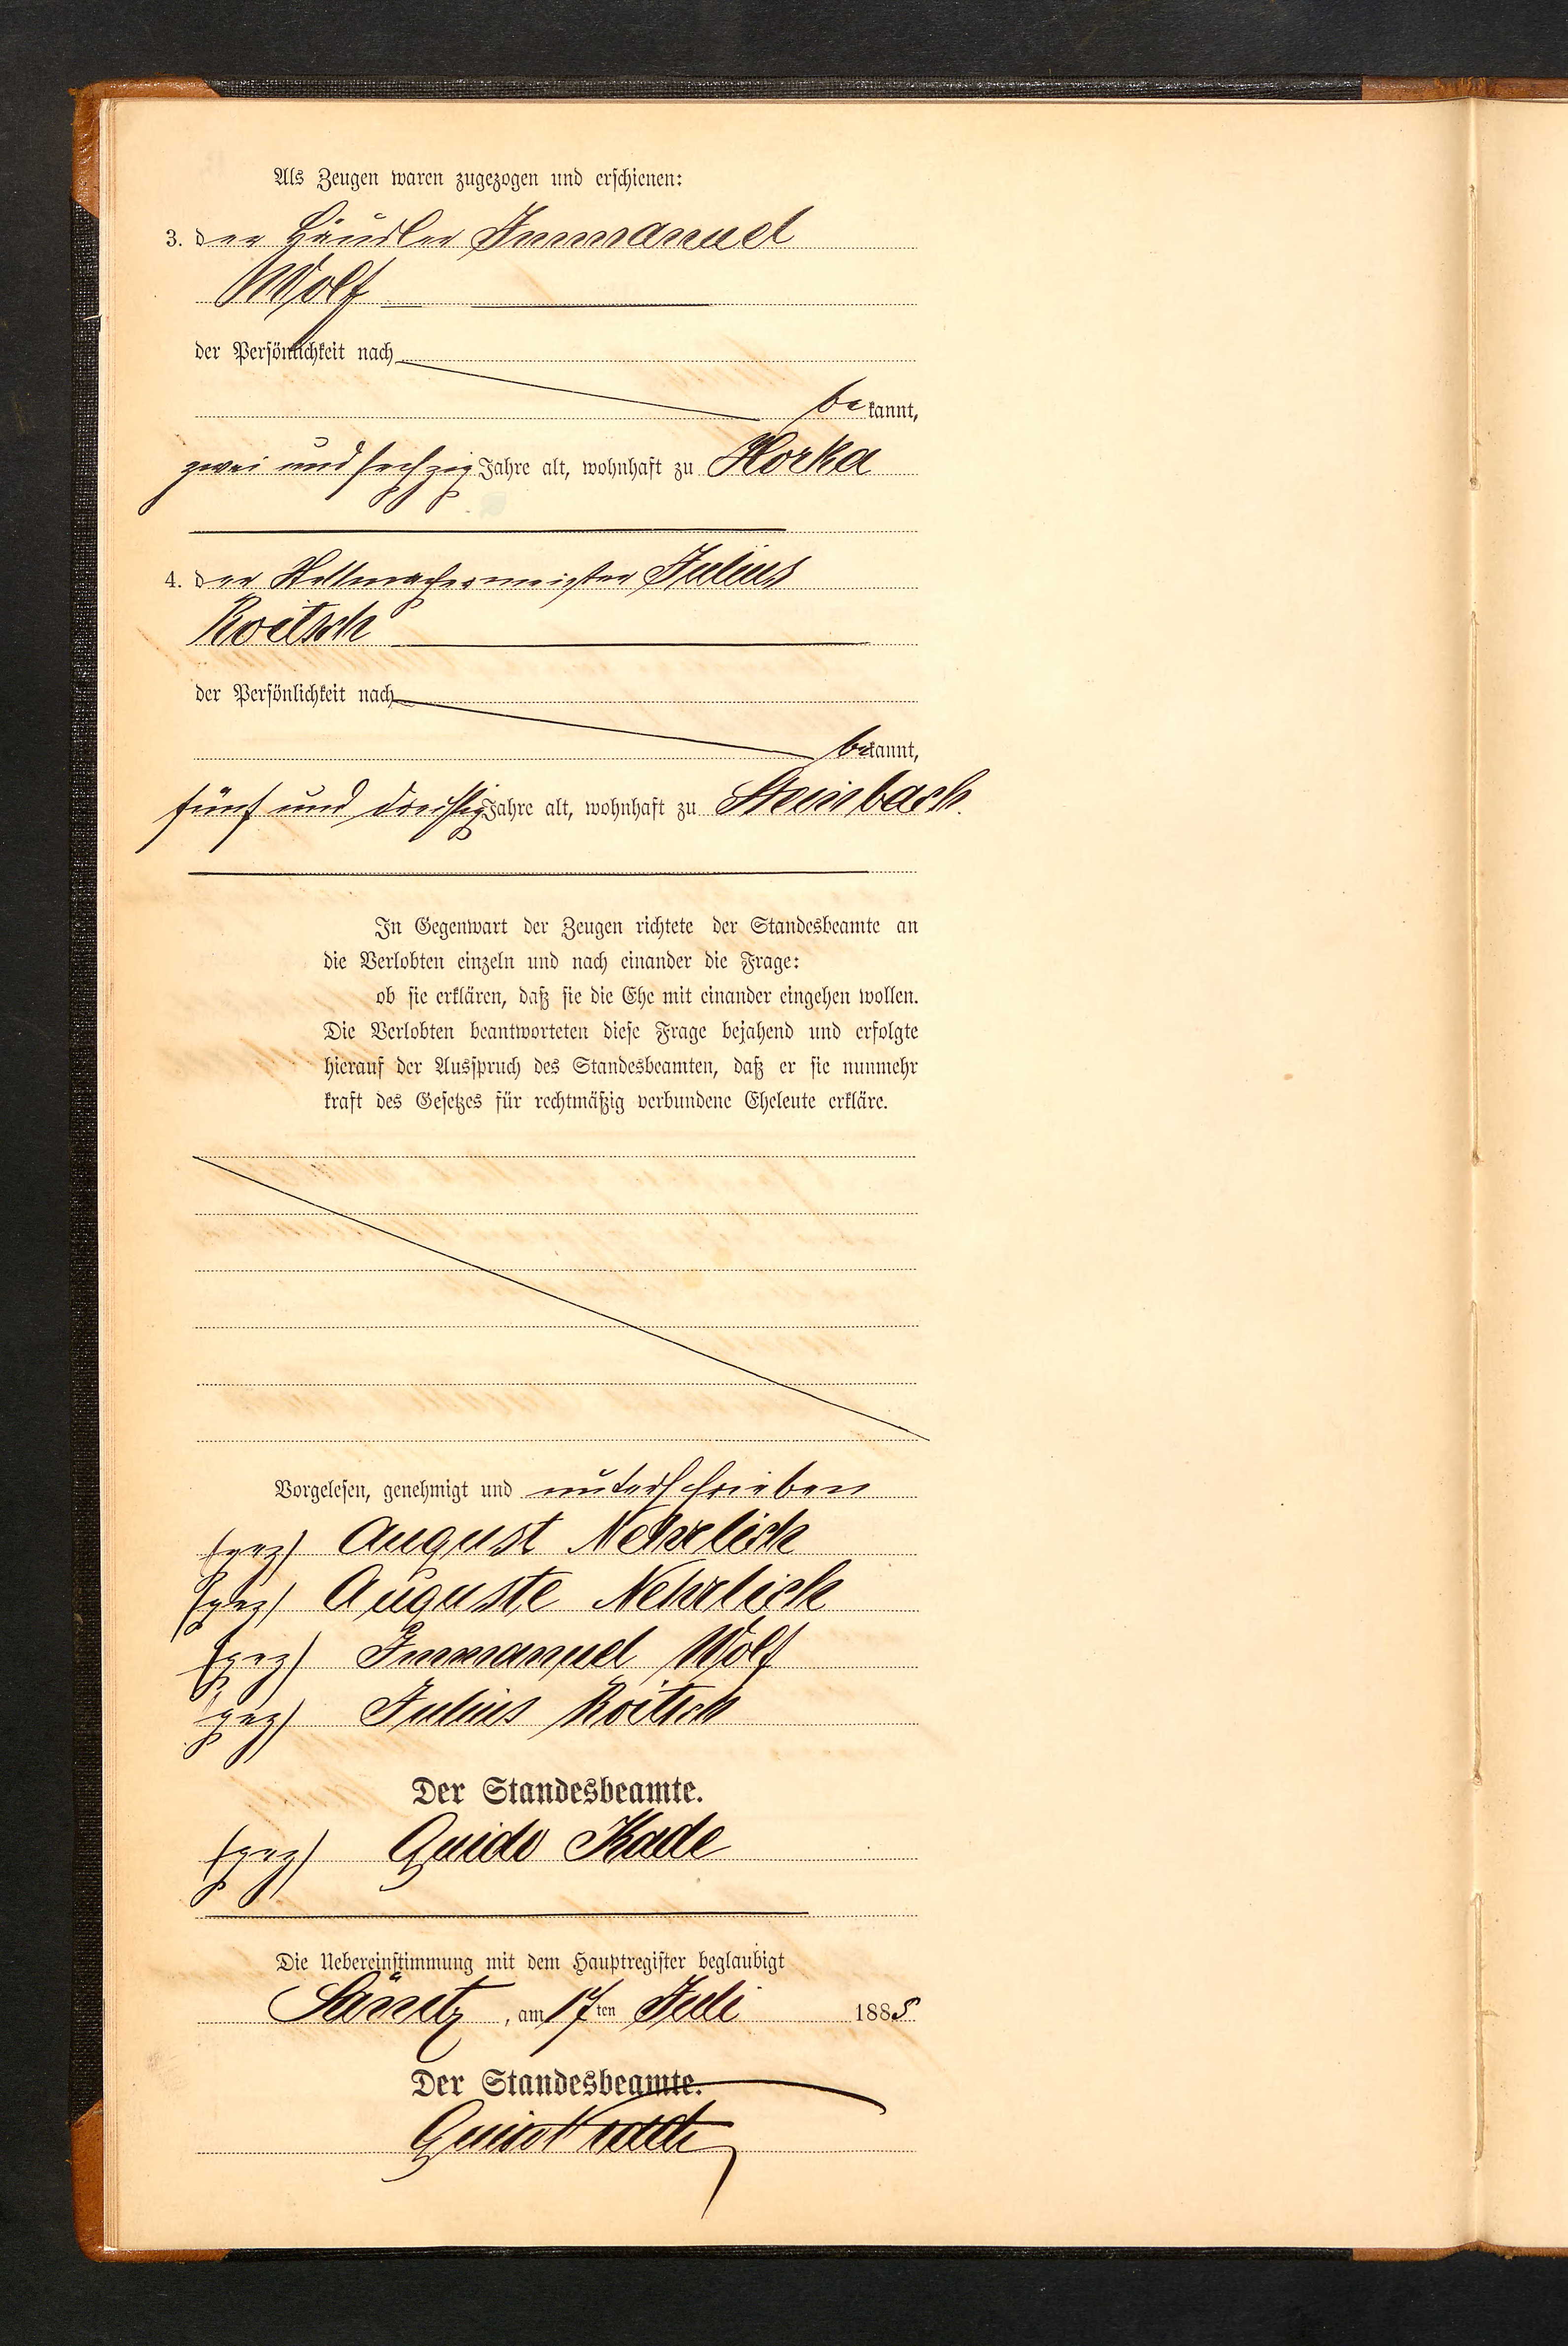 Als Zeugen waren zugezogen und erschienen:
3. der Händler Immanuel
Wolf
der Persönlichkeit nach
bekannt,
zwei und sechzig Jahre alt, wohnhaft zu Horka
4. der Stellmachermeister Julius
Roitsch
der Persönlichkeit nach
bekannt,
fünf und dreißig Jahre alt, wohnhaft zu Steinbach.
In Gegenwart der Zeugen richtete der Standesbeamte an
die Verlobten einzeln und nach einander die Frage:
ob sie erklären, daß sie die Ehe mit einander eingehen wollen.
Die Verlobten beantworteten diese Frage bejahend und erfolgte
hierauf der Ausspruch des Standesbeamten, daß er sie nunmehr
kraft des Gesetzes für rechtmäßig verbundene Eheleute erkläre.
Vorgelesen, genehmigt und unterschrieben
(gez) August Nehrlich
(gez) Auguste Nehrlich
(gez) Immanuel Wolf
(gez) Julius Roitsch
Der Standesbeamte.
(gez) Guido Kade
Die Uebereinstimmung mit dem Hauptregister beglaubigt
Sänitz, am 17ten Juli 1885
Der Standesbeamte.
Guido Kade